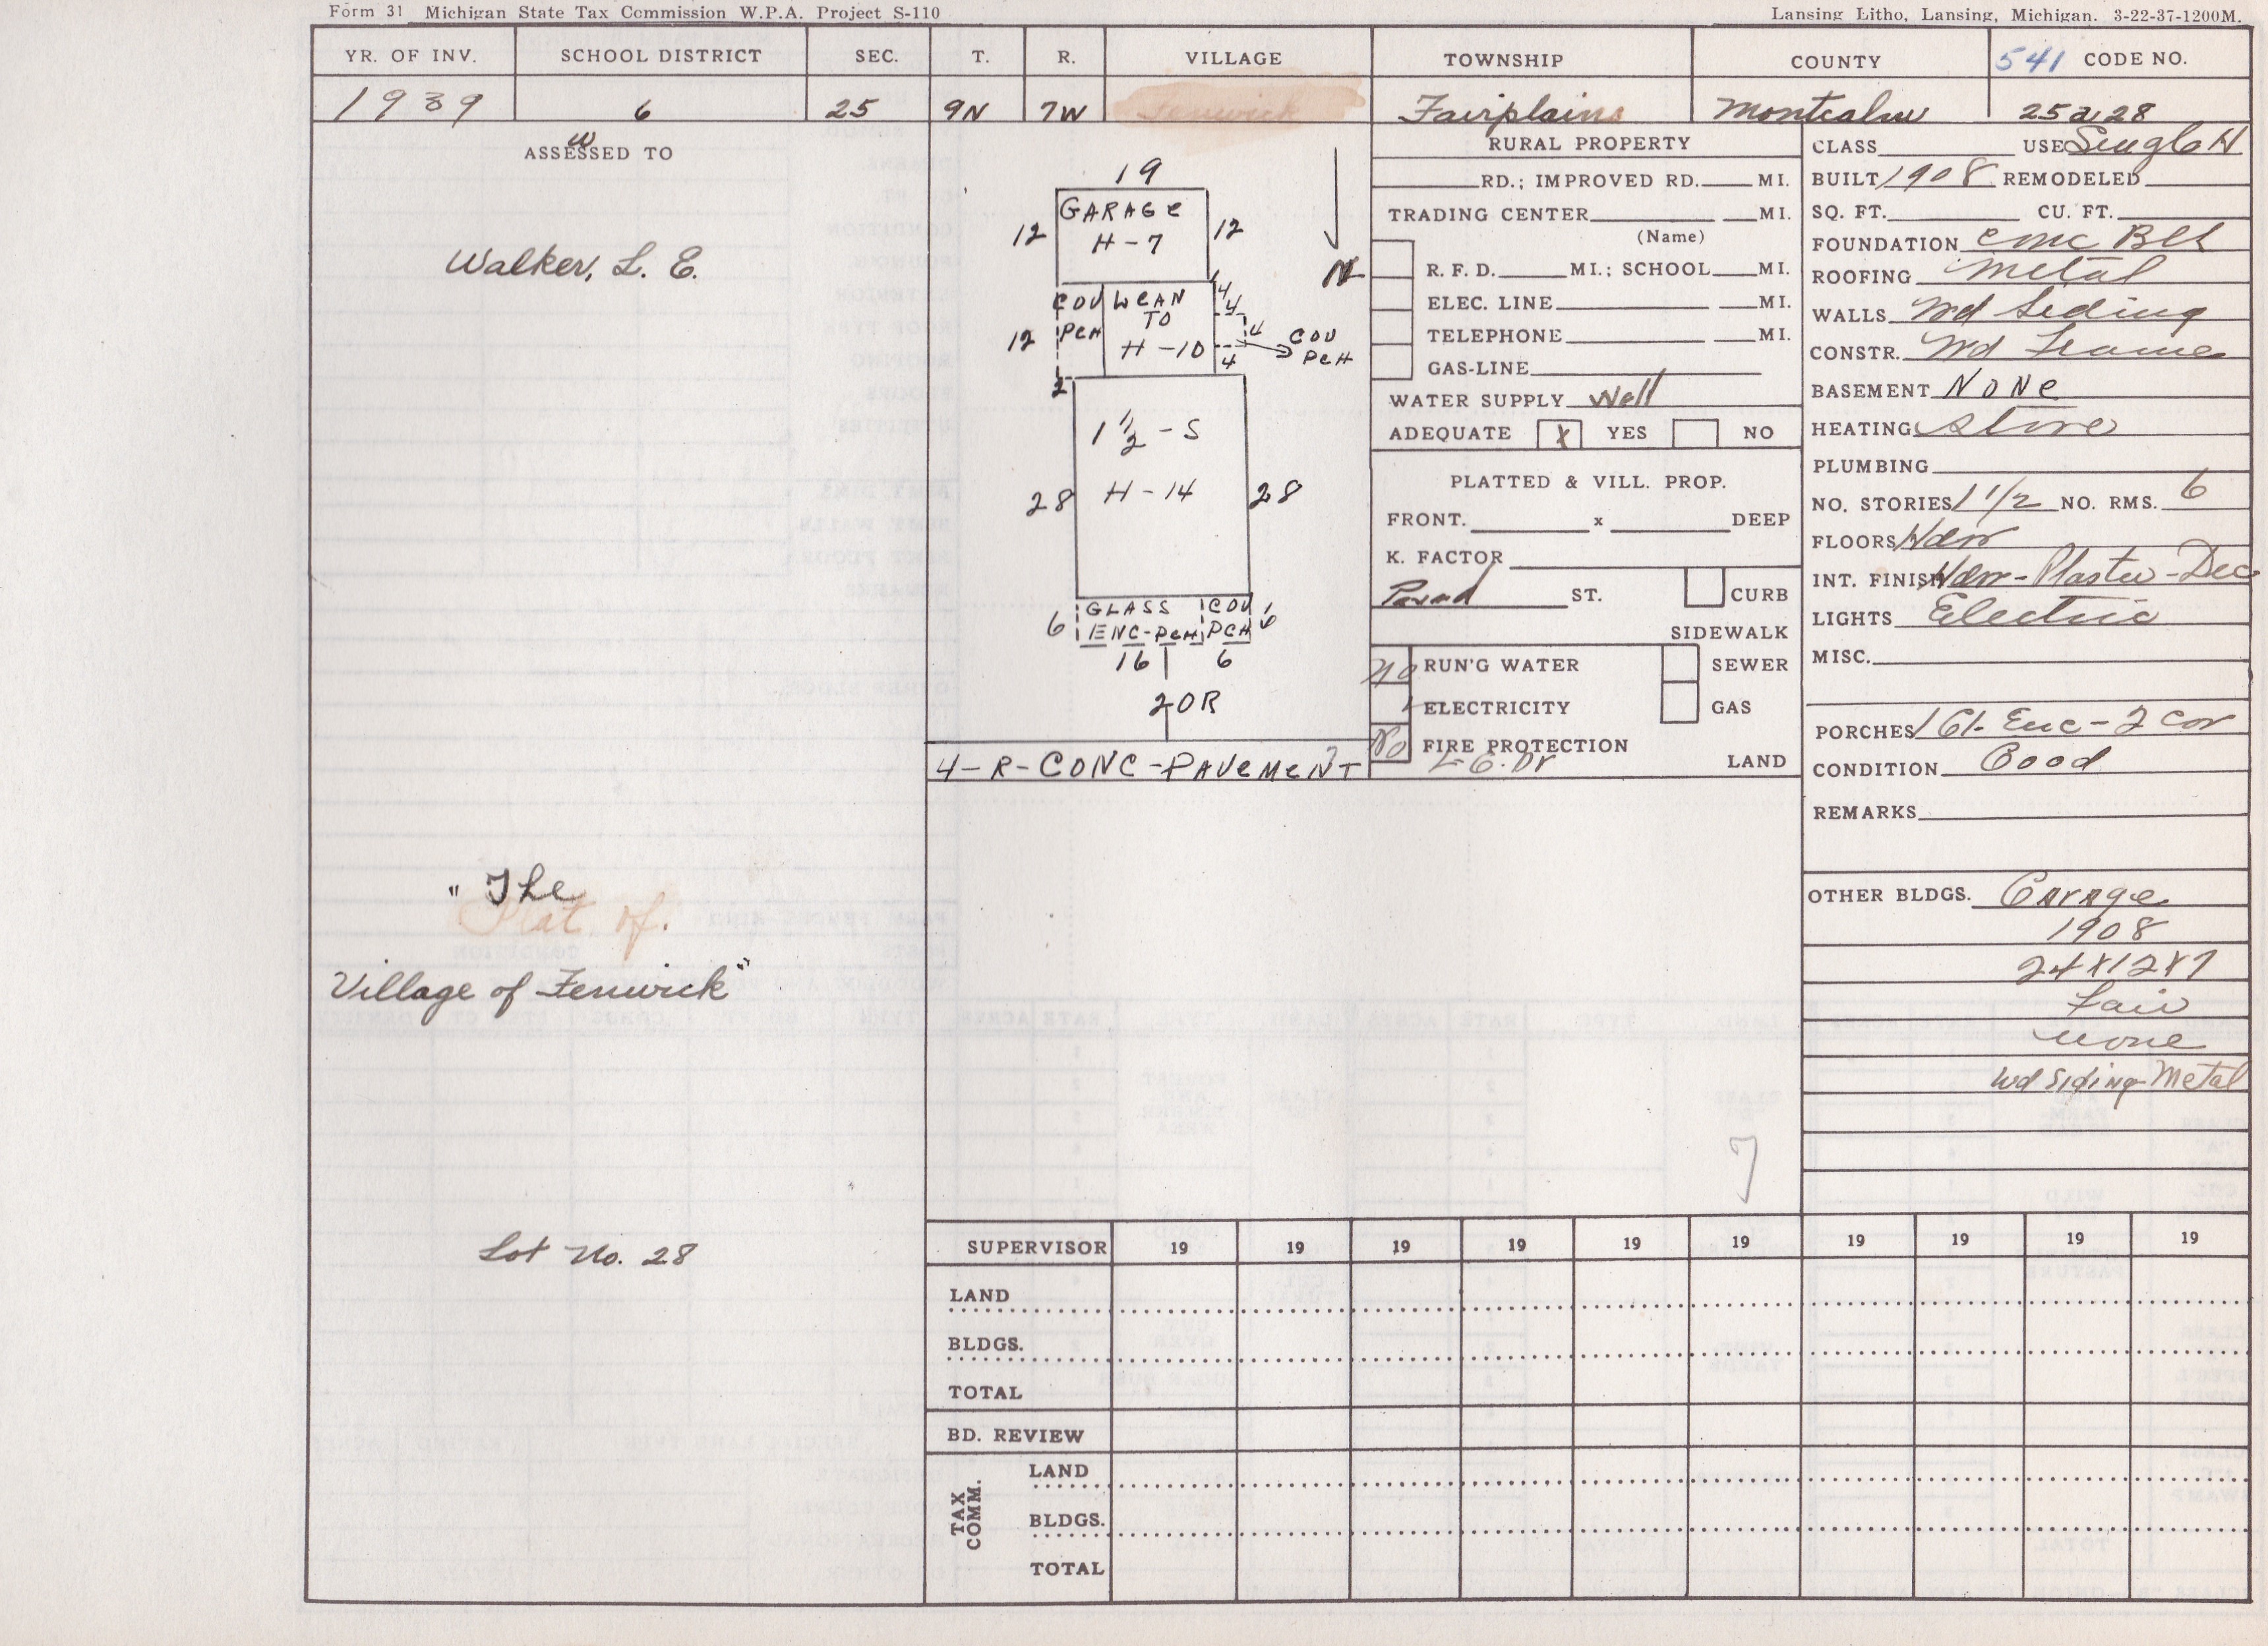 Form 31 Michigan State Tax Commission W.P.A. Project S-110
Lansing Litho, Lansing, Michigan. 3-22-37-1200M.
YR. OF INV. SCHOOL DISTRICT SEC. T. R. VILLAGE TOWNSHIP COUNTY 541 CODE NO.
1939 6 25 9N 7W Fenwick Fairplains Montcalm 25a28
W
ASSESSED TO
Walker, L. E.
"The
Plat of
Village of Fenwick"
Lot No. 28
19
GARAGE
12 H-7 12
N
COV LEAN 4
PCH TO 4
12 H-10 4 COV
4 PCH
2
1 1/2 - S
28 H-14 28
GLASS COV
6 ENC-PCH PCH 6
16 6
20R
4-R-CONC-PAVEMENT
RURAL PROPERTY
RD.; IMPROVED RD. MI.
TRADING CENTER MI.
(Name)
R. F. D. MI.; SCHOOL MI.
ELEC. LINE MI.
TELEPHONE MI.
GAS-LINE
WATER SUPPLY Well
ADEQUATE X YES NO
PLATTED & VILL. PROP.
FRONT. x DEEP
K. FACTOR
Paved ST. CURB
SIDEWALK
No RUN'G WATER SEWER
ELECTRICITY GAS
No FIRE PROTECTION
LAND
CLASS USE Single H
BUILT 1908 REMODELED
SQ. FT. CU. FT.
FOUNDATION Cmc Blk
ROOFING Metal
WALLS Wd Siding
CONSTR. Wd Frame
BASEMENT NONE
HEATING Stove
PLUMBING
NO. STORIES 1 1/2 NO. RMS. 6
FLOORS Hdw
INT. FINISH Hdw-Plaster-Dec
LIGHTS Electric
MISC.
PORCHES 1 Gl. Enc - 2 Cov
CONDITION Good
REMARKS
OTHER BLDGS. Garage
1908
24X12X7
Fair
None
Wd Siding-Metal
7
SUPERVISOR 19 19 19 19 19 19 19 19 19 19
LAND
BLDGS.
TOTAL
BD. REVIEW
TAX COMM.
LAND
BLDGS.
TOTAL